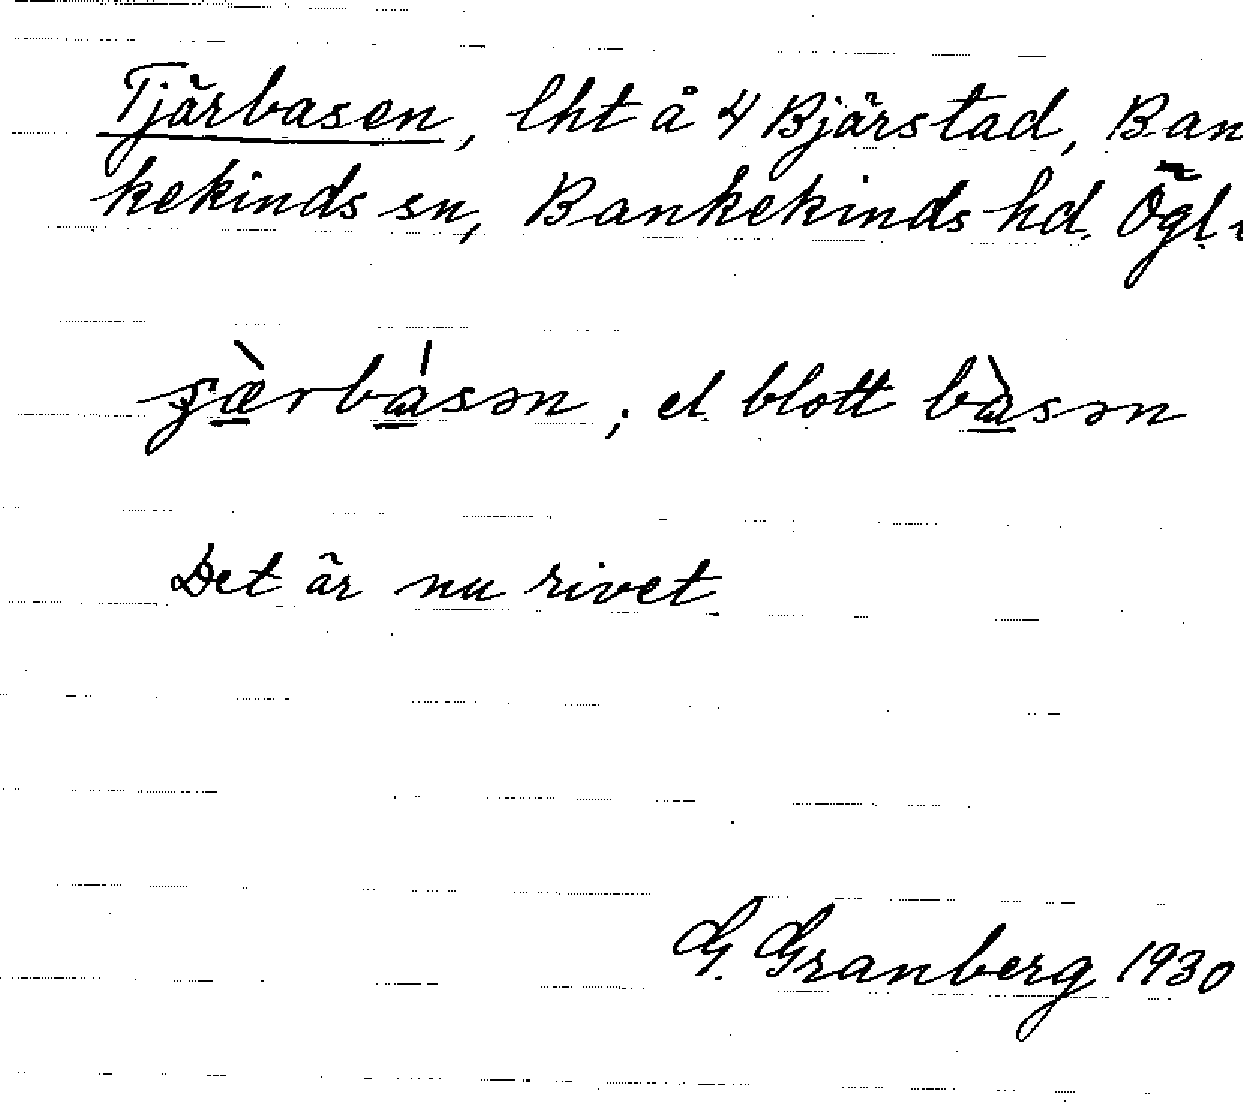 Tjärbasen, lht å 4 Bjärstad, Ban
kekinds sn, Bankekinds hd. Ögl.
; el. blott
Det är nu rivet.
G. Granberg 1930